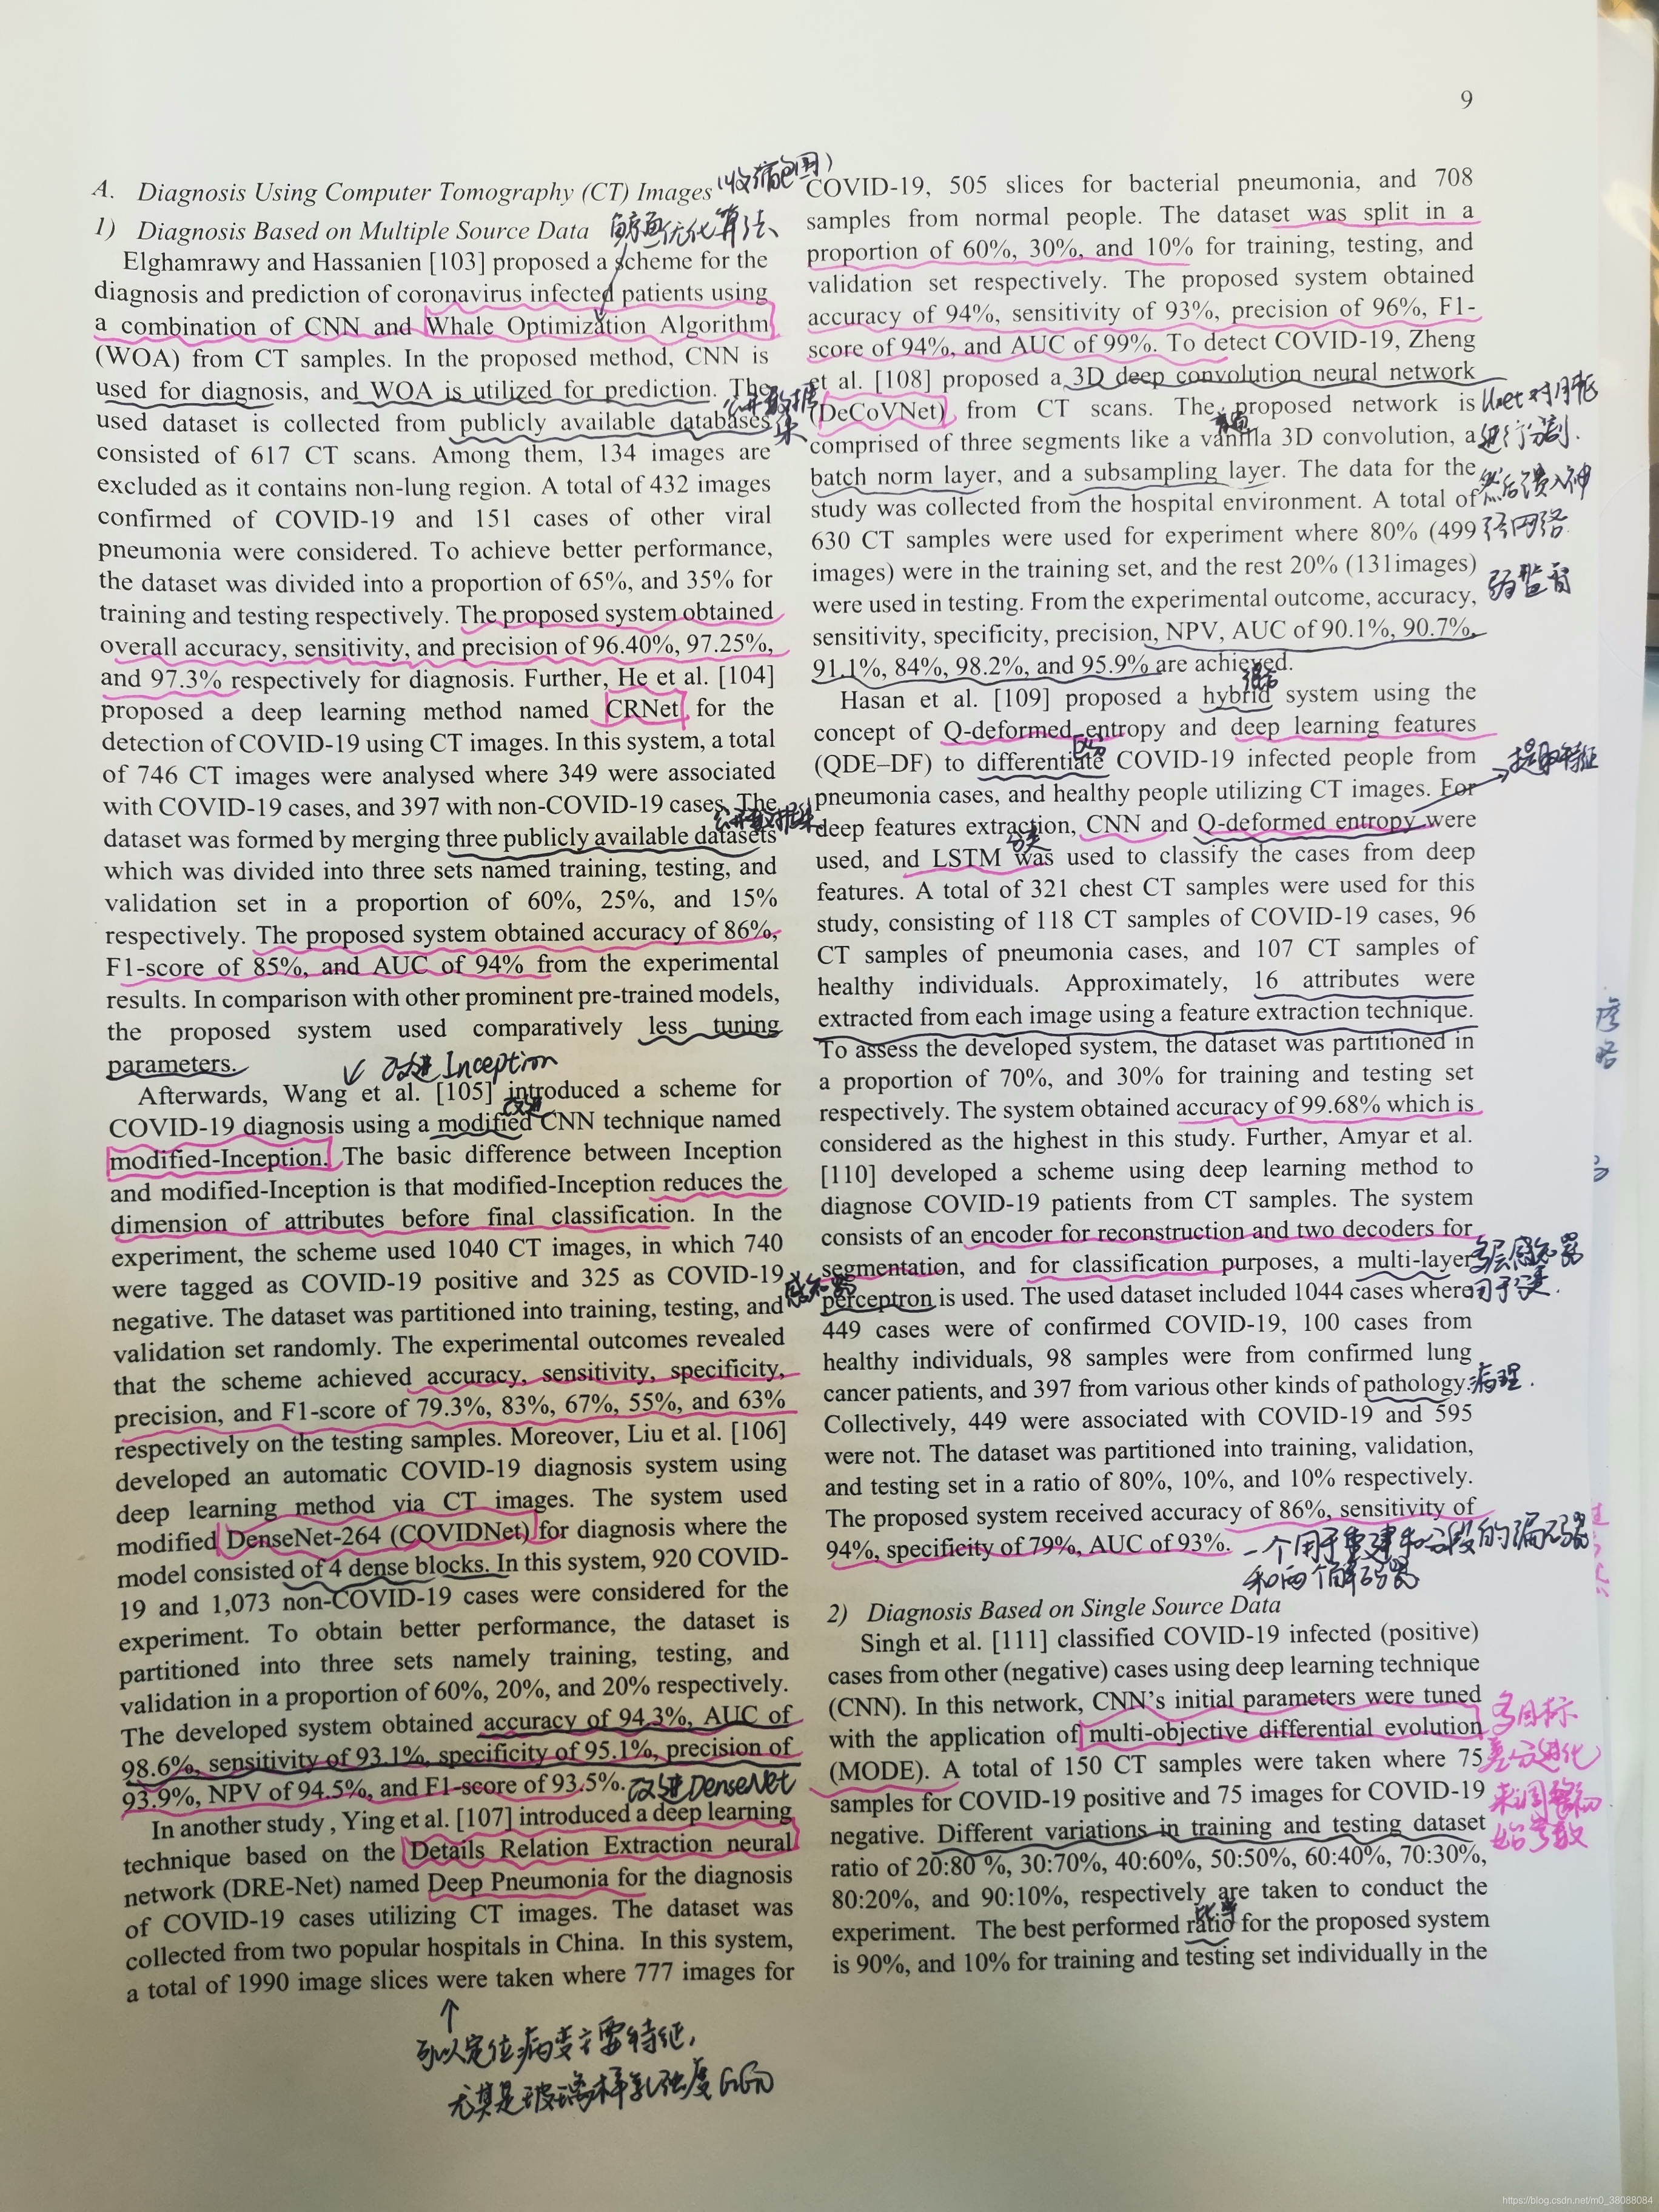 9
A. Diagnosis Using Computer Tomography (CT) Images
1) Diagnosis Based on Multiple Source Data
鲸鱼优化算法
Elghamrawy and Hassanien [103] proposed a scheme for the
diagnosis and prediction of coronavirus infected patients using
a combination of CNN and Whale Optimization Algorithm
(WOA) from CT samples. In the proposed method, CNN is
used for diagnosis, and WOA is utilized for prediction. The
公开数据集
used dataset is collected from publicly available databases
consisted of 617 CT scans. Among them, 134 images are
excluded as it contains non-lung region. A total of 432 images
confirmed of COVID-19 and 151 cases of other viral
pneumonia were considered. To achieve better performance,
the dataset was divided into a proportion of 65%, and 35% for
training and testing respectively. The proposed system obtained
overall accuracy, sensitivity, and precision of 96.40%, 97.25%,
and 97.3% respectively for diagnosis. Further, He et al. [104]
proposed a deep learning method named CRNet for the
detection of COVID-19 using CT images. In this system, a total
of 746 CT images were analysed where 349 were associated
with COVID-19 cases, and 397 with non-COVID-19 cases. The
公开数据集
dataset was formed by merging three publicly available datasets
which was divided into three sets named training, testing, and
validation set in a proportion of 60%, 25%, and 15%
respectively. The proposed system obtained accuracy of 86%,
F1-score of 85%, and AUC of 94% from the experimental
results. In comparison with other prominent pre-trained models,
the proposed system used comparatively less tuning
parameters.
改进 Inception
Afterwards, Wang et al. [105] introduced a scheme for
改进
COVID-19 diagnosis using a modified CNN technique named
modified-Inception. The basic difference between Inception
and modified-Inception is that modified-Inception reduces the
dimension of attributes before final classification. In the
experiment, the scheme used 1040 CT images, in which 740
were tagged as COVID-19 positive and 325 as COVID-19
negative. The dataset was partitioned into training, testing, and
validation set randomly. The experimental outcomes revealed
that the scheme achieved accuracy, sensitivity, specificity,
precision, and F1-score of 79.3%, 83%, 67%, 55%, and 63%
respectively on the testing samples. Moreover, Liu et al. [106]
developed an automatic COVID-19 diagnosis system using
deep learning method via CT images. The system used
modified DenseNet-264 (COVIDNet) for diagnosis where the
model consisted of 4 dense blocks. In this system, 920 COVID-
19 and 1,073 non-COVID-19 cases were considered for the
experiment. To obtain better performance, the dataset is
partitioned into three sets namely training, testing, and
validation in a proportion of 60%, 20%, and 20% respectively.
The developed system obtained accuracy of 94.3%, AUC of
98.6%, sensitivity of 93.1%, specificity of 95.1%, precision of
93.9%, NPV of 94.5%, and F1-score of 93.5%.
改进 DenseNet
In another study , Ying et al. [107] introduced a deep learning
technique based on the Details Relation Extraction neural
network (DRE-Net) named Deep Pneumonia for the diagnosis
of COVID-19 cases utilizing CT images. The dataset was
collected from two popular hospitals in China. In this system,
a total of 1990 image slices were taken where 777 images for
可以定位病变主要特征,
尤其是玻璃样乳浊度 GGO
COVID-19, 505 slices for bacterial pneumonia, and 708
samples from normal people. The dataset was split in a
proportion of 60%, 30%, and 10% for training, testing, and
validation set respectively. The proposed system obtained
accuracy of 94%, sensitivity of 93%, precision of 96%, F1-
score of 94%, and AUC of 99%. To detect COVID-19, Zheng
et al. [108] proposed a 3D deep convolution neural network
(DeCoVNet) from CT scans. The proposed network is
comprised of three segments like a vanilla 3D convolution, a
batch norm layer, and a subsampling layer. The data for the
study was collected from the hospital environment. A total of
630 CT samples were used for experiment where 80% (499
images) were in the training set, and the rest 20% (131images)
were used in testing. From the experimental outcome, accuracy,
sensitivity, specificity, precision, NPV, AUC of 90.1%, 90.7%,
91.1%, 84%, 98.2%, and 95.9% are achieved.
Unet对肺
进行分割.
然后馈入神
经网络
弱监督
混合
Hasan et al. [109] proposed a hybrid system using the
concept of Q-deformed entropy and deep learning features
区分
(QDE–DF) to differentiate COVID-19 infected people from
提取特征
pneumonia cases, and healthy people utilizing CT images. For
deep features extraction, CNN and Q-deformed entropy were
分类
used, and LSTM was used to classify the cases from deep
features. A total of 321 chest CT samples were used for this
study, consisting of 118 CT samples of COVID-19 cases, 96
CT samples of pneumonia cases, and 107 CT samples of
healthy individuals. Approximately, 16 attributes were
extracted from each image using a feature extraction technique.
To assess the developed system, the dataset was partitioned in
a proportion of 70%, and 30% for training and testing set
respectively. The system obtained accuracy of 99.68% which is
considered as the highest in this study. Further, Amyar et al.
[110] developed a scheme using deep learning method to
diagnose COVID-19 patients from CT samples. The system
consists of an encoder for reconstruction and two decoders for
segmentation, and for classification purposes, a multi-layer
多层感知器
感知器
perceptron is used. The used dataset included 1044 cases where
用于分类.
449 cases were of confirmed COVID-19, 100 cases from
healthy individuals, 98 samples were from confirmed lung
cancer patients, and 397 from various other kinds of pathology.
病理.
Collectively, 449 were associated with COVID-19 and 595
were not. The dataset was partitioned into training, validation,
and testing set in a ratio of 80%, 10%, and 10% respectively.
The proposed system received accuracy of 86%, sensitivity of
94%, specificity of 79%, AUC of 93%.
一个用于重建和分段的编码器
和两个解码器
2) Diagnosis Based on Single Source Data
Singh et al. [111] classified COVID-19 infected (positive)
cases from other (negative) cases using deep learning technique
(CNN). In this network, CNN’s initial parameters were tuned
with the application of multi-objective differential evolution
(MODE). A total of 150 CT samples were taken where 75
samples for COVID-19 positive and 75 images for COVID-19
negative. Different variations in training and testing dataset
ratio of 20:80 %, 30:70%, 40:60%, 50:50%, 60:40%, 70:30%,
80:20%, and 90:10%, respectively are taken to conduct the
比率
experiment. The best performed ratio for the proposed system
is 90%, and 10% for training and testing set individually in the
多目标
差分进化
来调整初
始参数
https://blog.csdn.net/m0_38088084